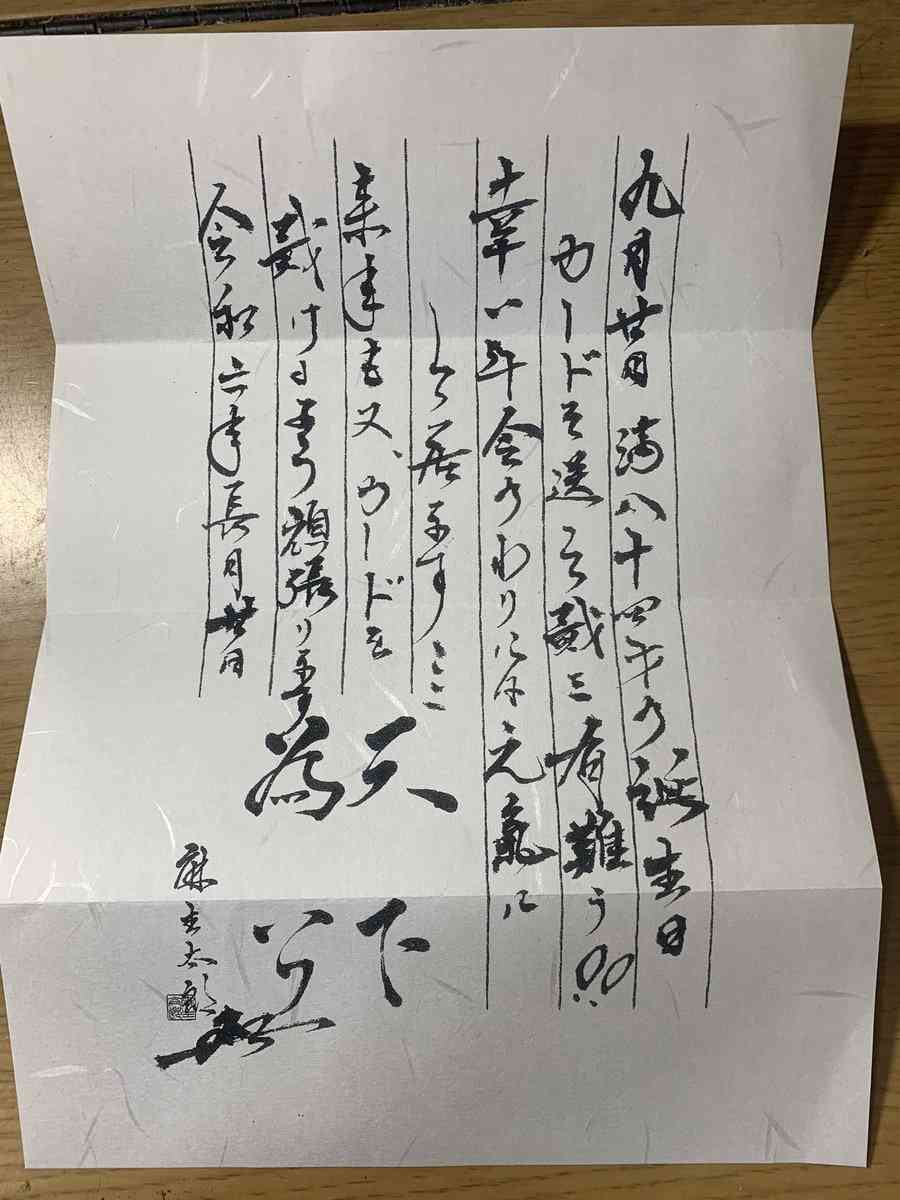 九月廿日 満八十四才の誕生日
カードを送って戴き有難う!!
幸い年令のわりには元氣に
して居ます
来年も又、カードを
戴けるよう頑張ります
令和六年長月廿日
天下
為公
麻生太郎